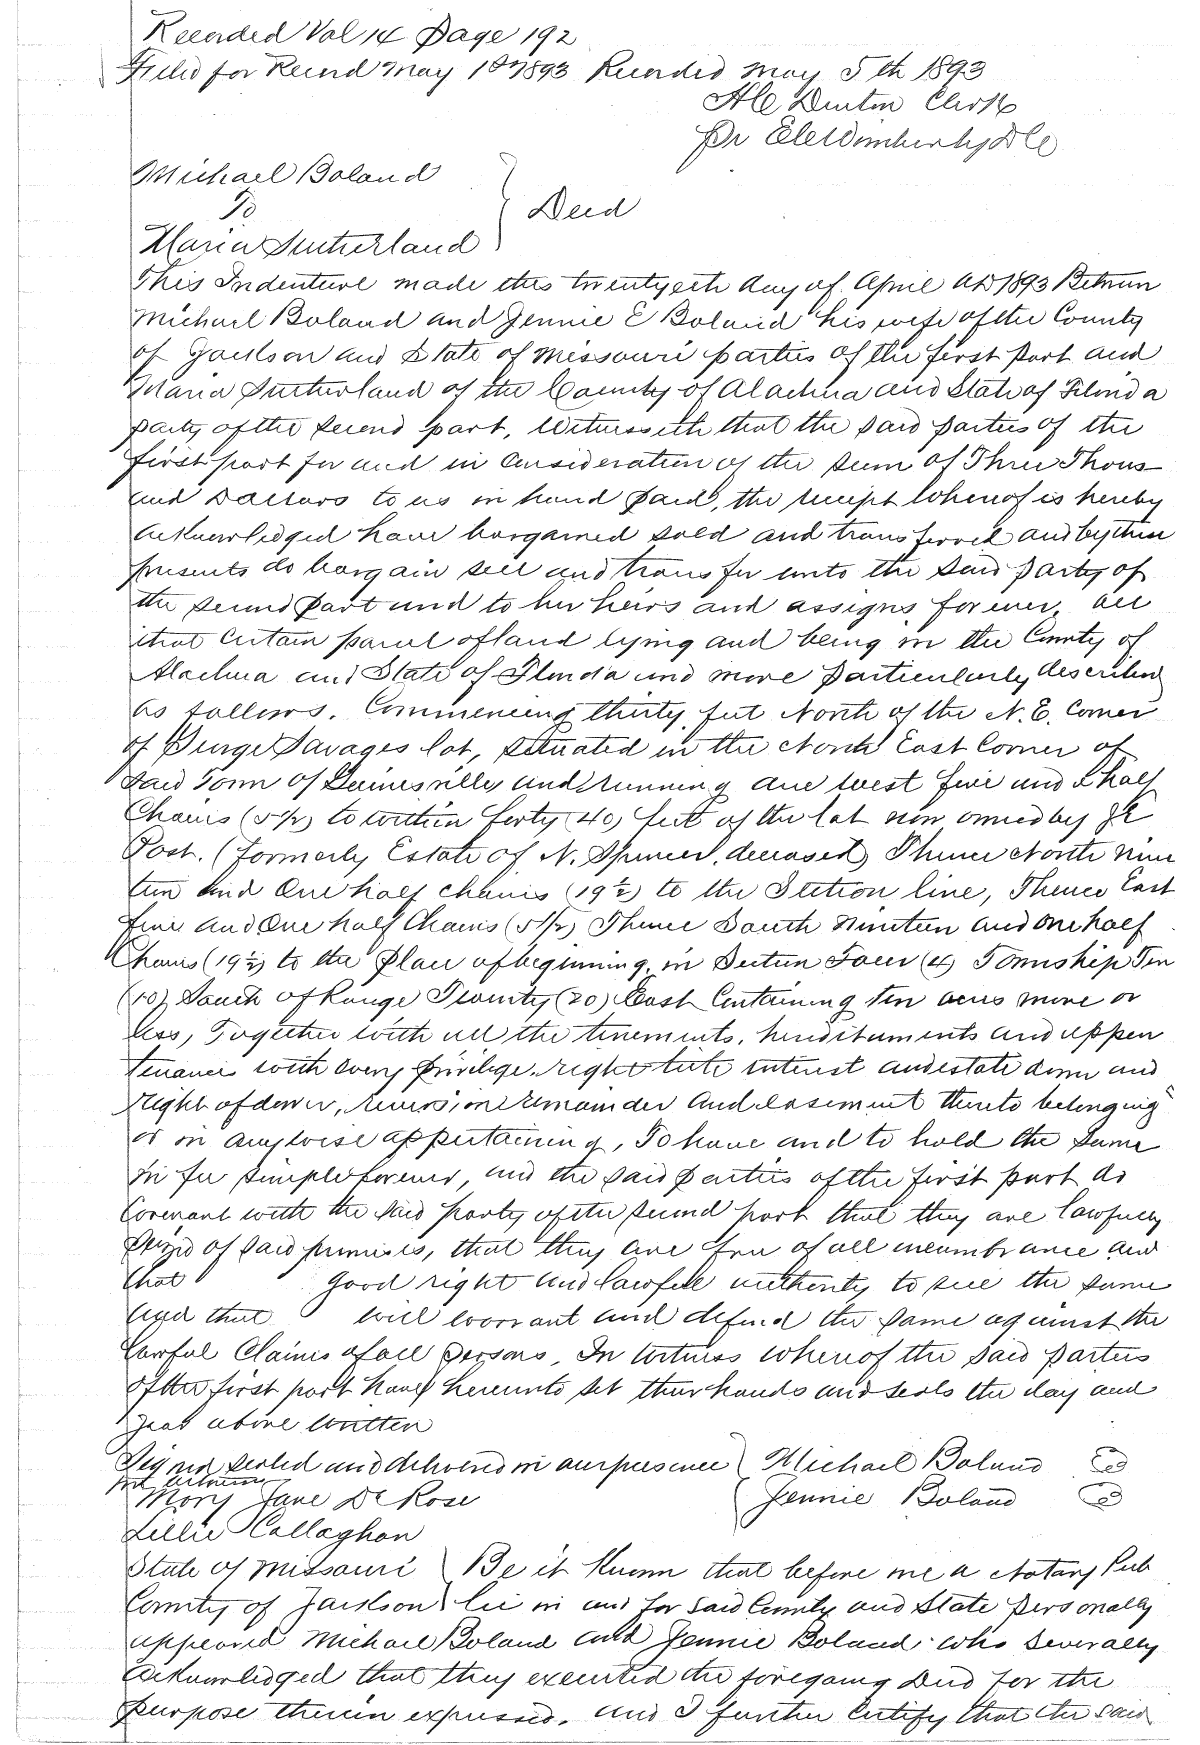 Recorded Vol 14 Page 192
Filed for Record May 1st 1893 Recorded May 5th 1893
Clerk
Pr DC
Michael Boland
To
Deed
Maria Sutherland
This Indenture made this twentyeth day of April AD 1893 Between
Michael Boland and Jennie E Boland his wife of the County
of Jackson and State of Missouri parties of the first part and
Maria Sutherland of the County of Alachua and State of Florida
party of the second part, Witnesseth that the said parties of the
first part for and in Consideration of the sum of Three Thous
and Dollars to us in hand paid, the receipt whereof is hereby
acknowledged have bargained sold and transferred and by these
presents do bargain sell and transfer unto the said party of
the second part and to her heirs and assigns forever, all
that certain parcel of land lying and being in the County of
Alachua and State of Florida and more particularly described
as follows. Commencing thirty feet North of the N.E. Corner
of Savages lot, situated in the North East Corner of
said Town of Gainesville and running due west five and a half
Chains (5½) to within forty (40) feet of the lot now owned by
Post. (formerly Estate of N. Spencer, deceased) Thence North nine
teen and One half chains (19½) to the Section line, Thence East
five and One half Chains (5½) Thence South Nineteen and one half
Chains (19½) to the Place of beginning, in Section Four (4) Township Ten
(10) South of Range Twenty (20) East Containing ten acres more or
less, Together with all the tenements, hereditaments and appen
tenances with every privilege, right title interest and estate dower and
right of dower, reversion remainder and easement thereto belonging
or in anywise appertaining, To have and to hold the same
in fee simple forever, and the said parties of the first part do
Covenant with the said party of the second part that they are lawfully
seized of said premises, that they are free of all incumbrance and
that good right and lawful authority to sell the same
and that will warrant and defend the same against the
lawful Claims of all persons, In witness whereof the said parties
of the first part have hereunto set their hands and seals the day and
year above written
Signed sealed and delivered in our presence Michael Boland
Mary Jane De Rose Jennie Boland
Lillie Callaghan
State of Missouri Be it Known that before me a Notary Pub
County of Jackson lic in and for said County and State personally
appeared Michael Boland and Jennie Boland who severally
acknowledged that they executed the foregoing Deed for the
purpose therein expressed. and I further Certify that the said